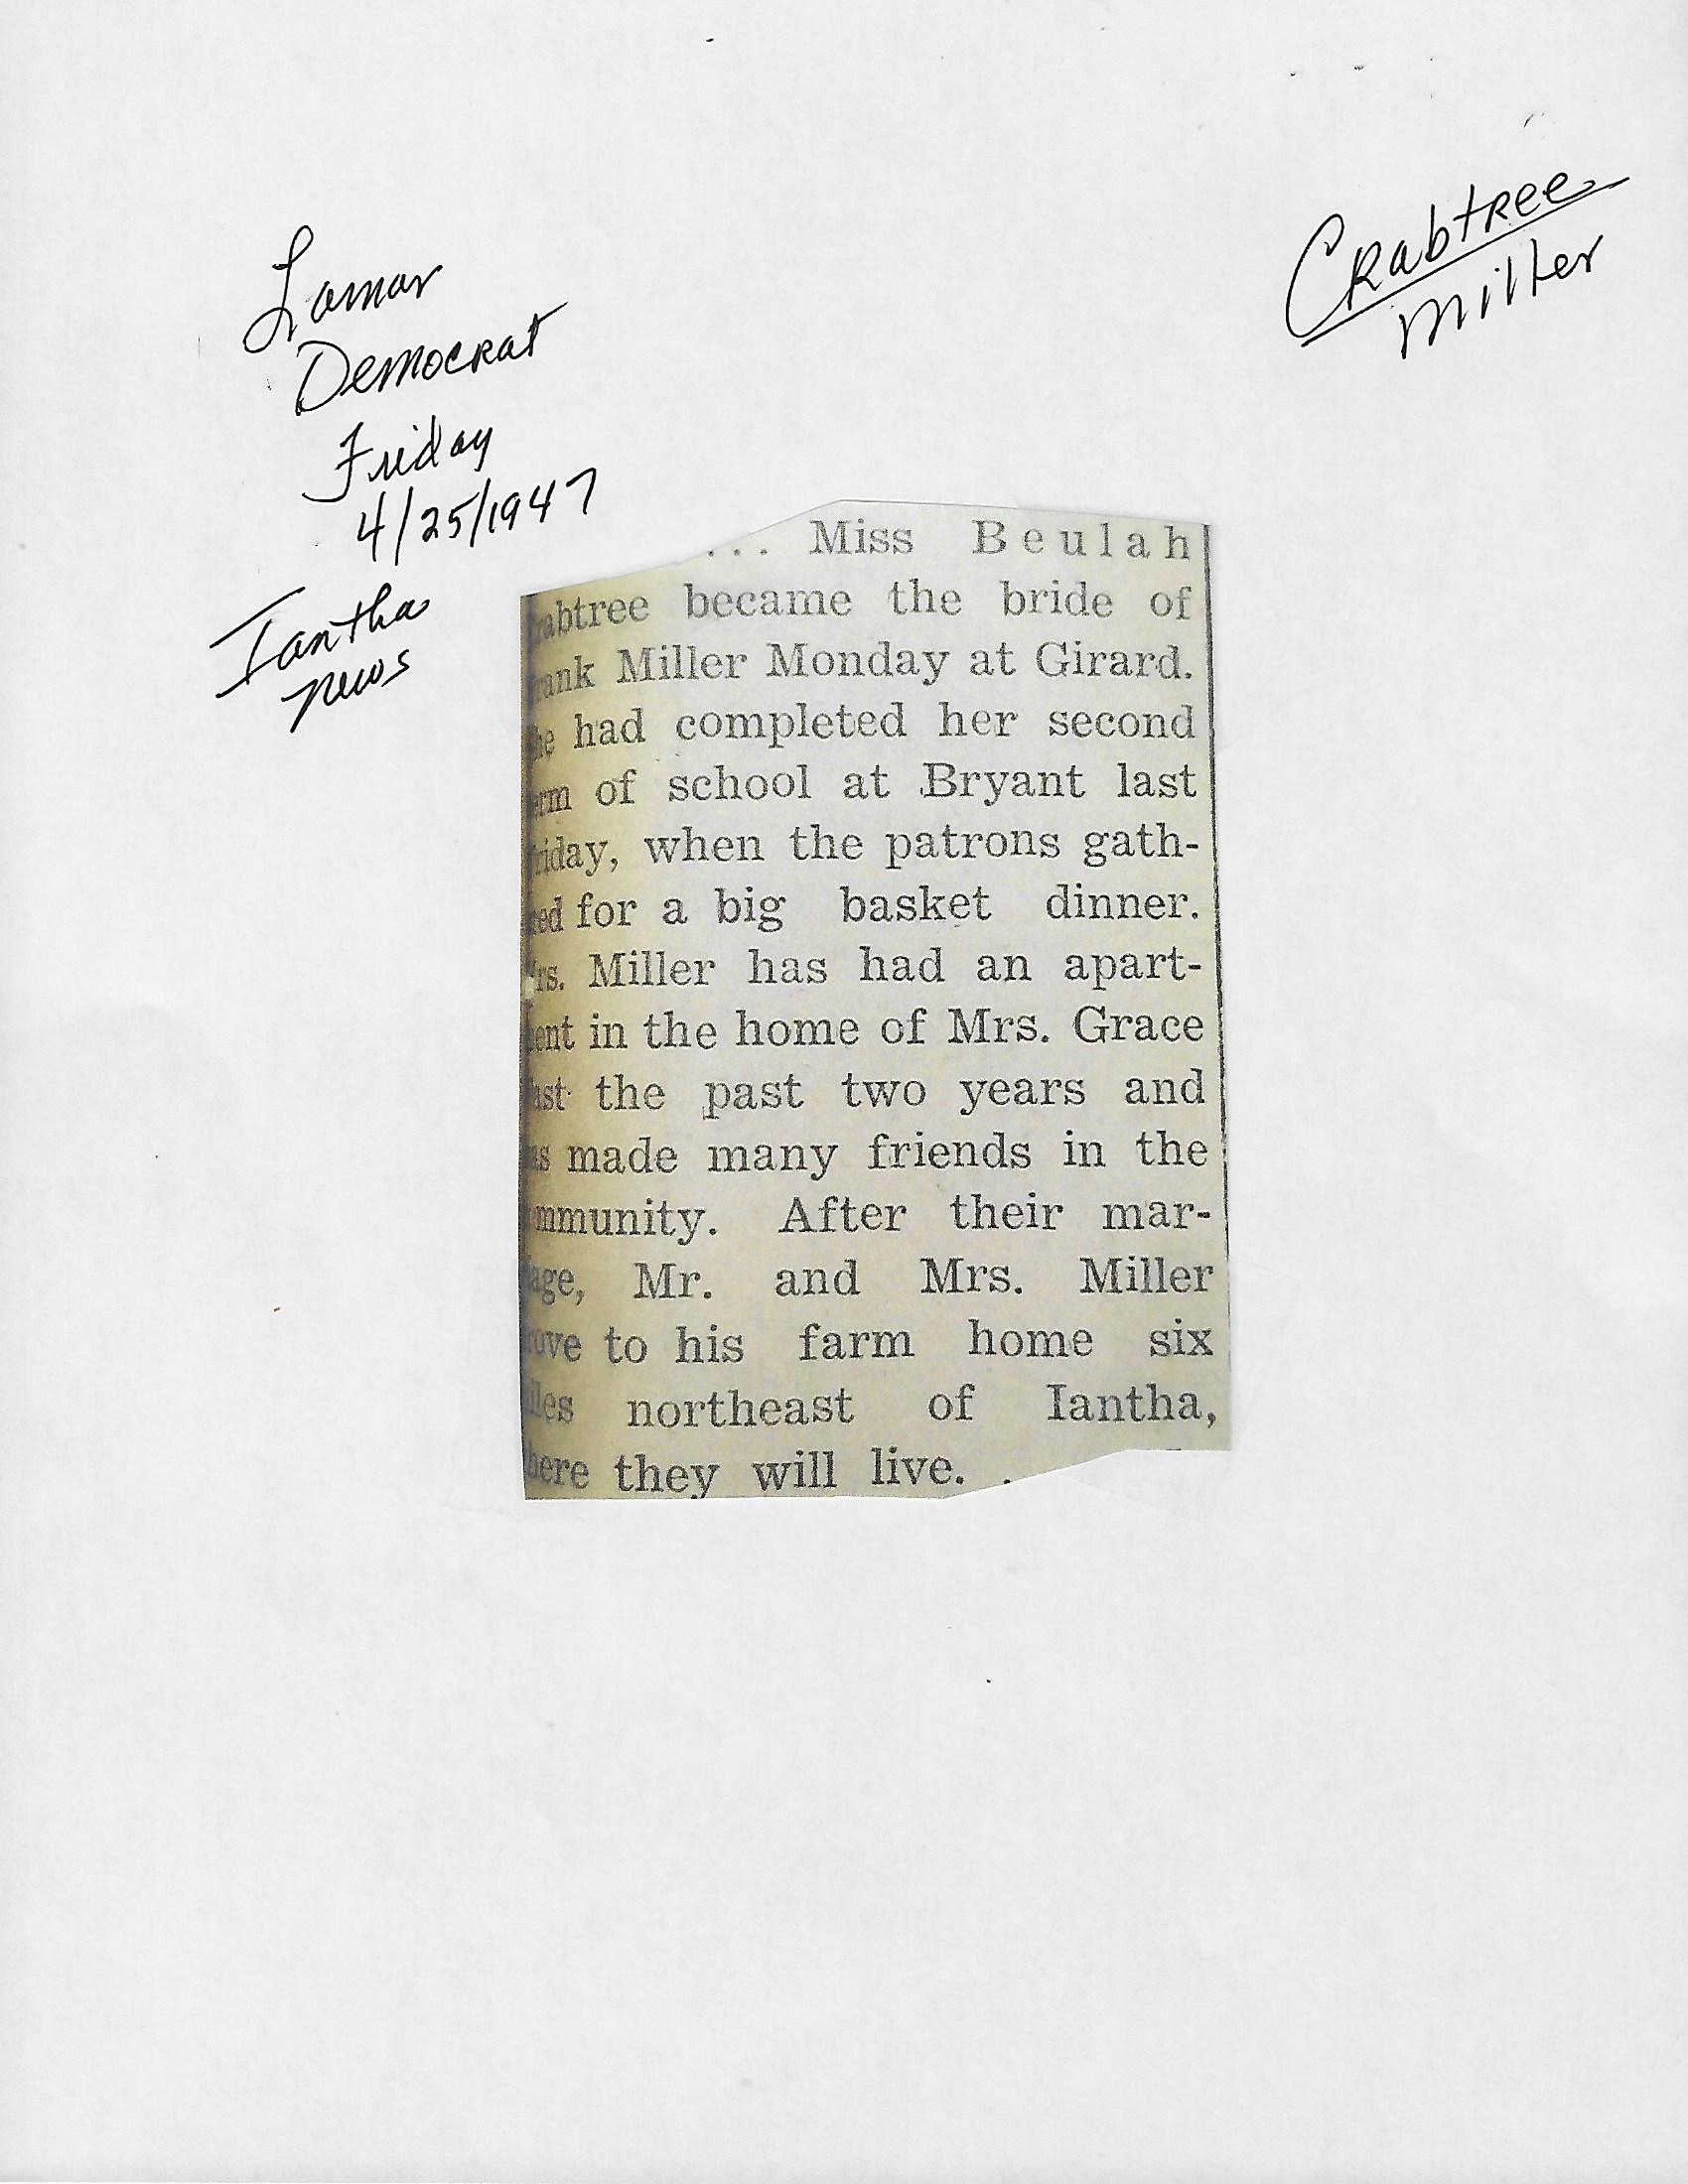 Crabtree
Miller
Lamar
Democrat
Friday
4/25/1947
Iantha
News
... Miss Beulah
rabtree became the bride of
rank Miller Monday at Girard.
he had completed her second
erm of school at Bryant last
riday, when the patrons gath-
red for a big basket dinner.
rs. Miller has had an apart-
ent in the home of Mrs. Grace
ast the past two years and
as made many friends in the
mmunity. After their mar-
iage, Mr. and Mrs. Miller
rove to his farm home six
iles northeast of Iantha,
here they will live. .